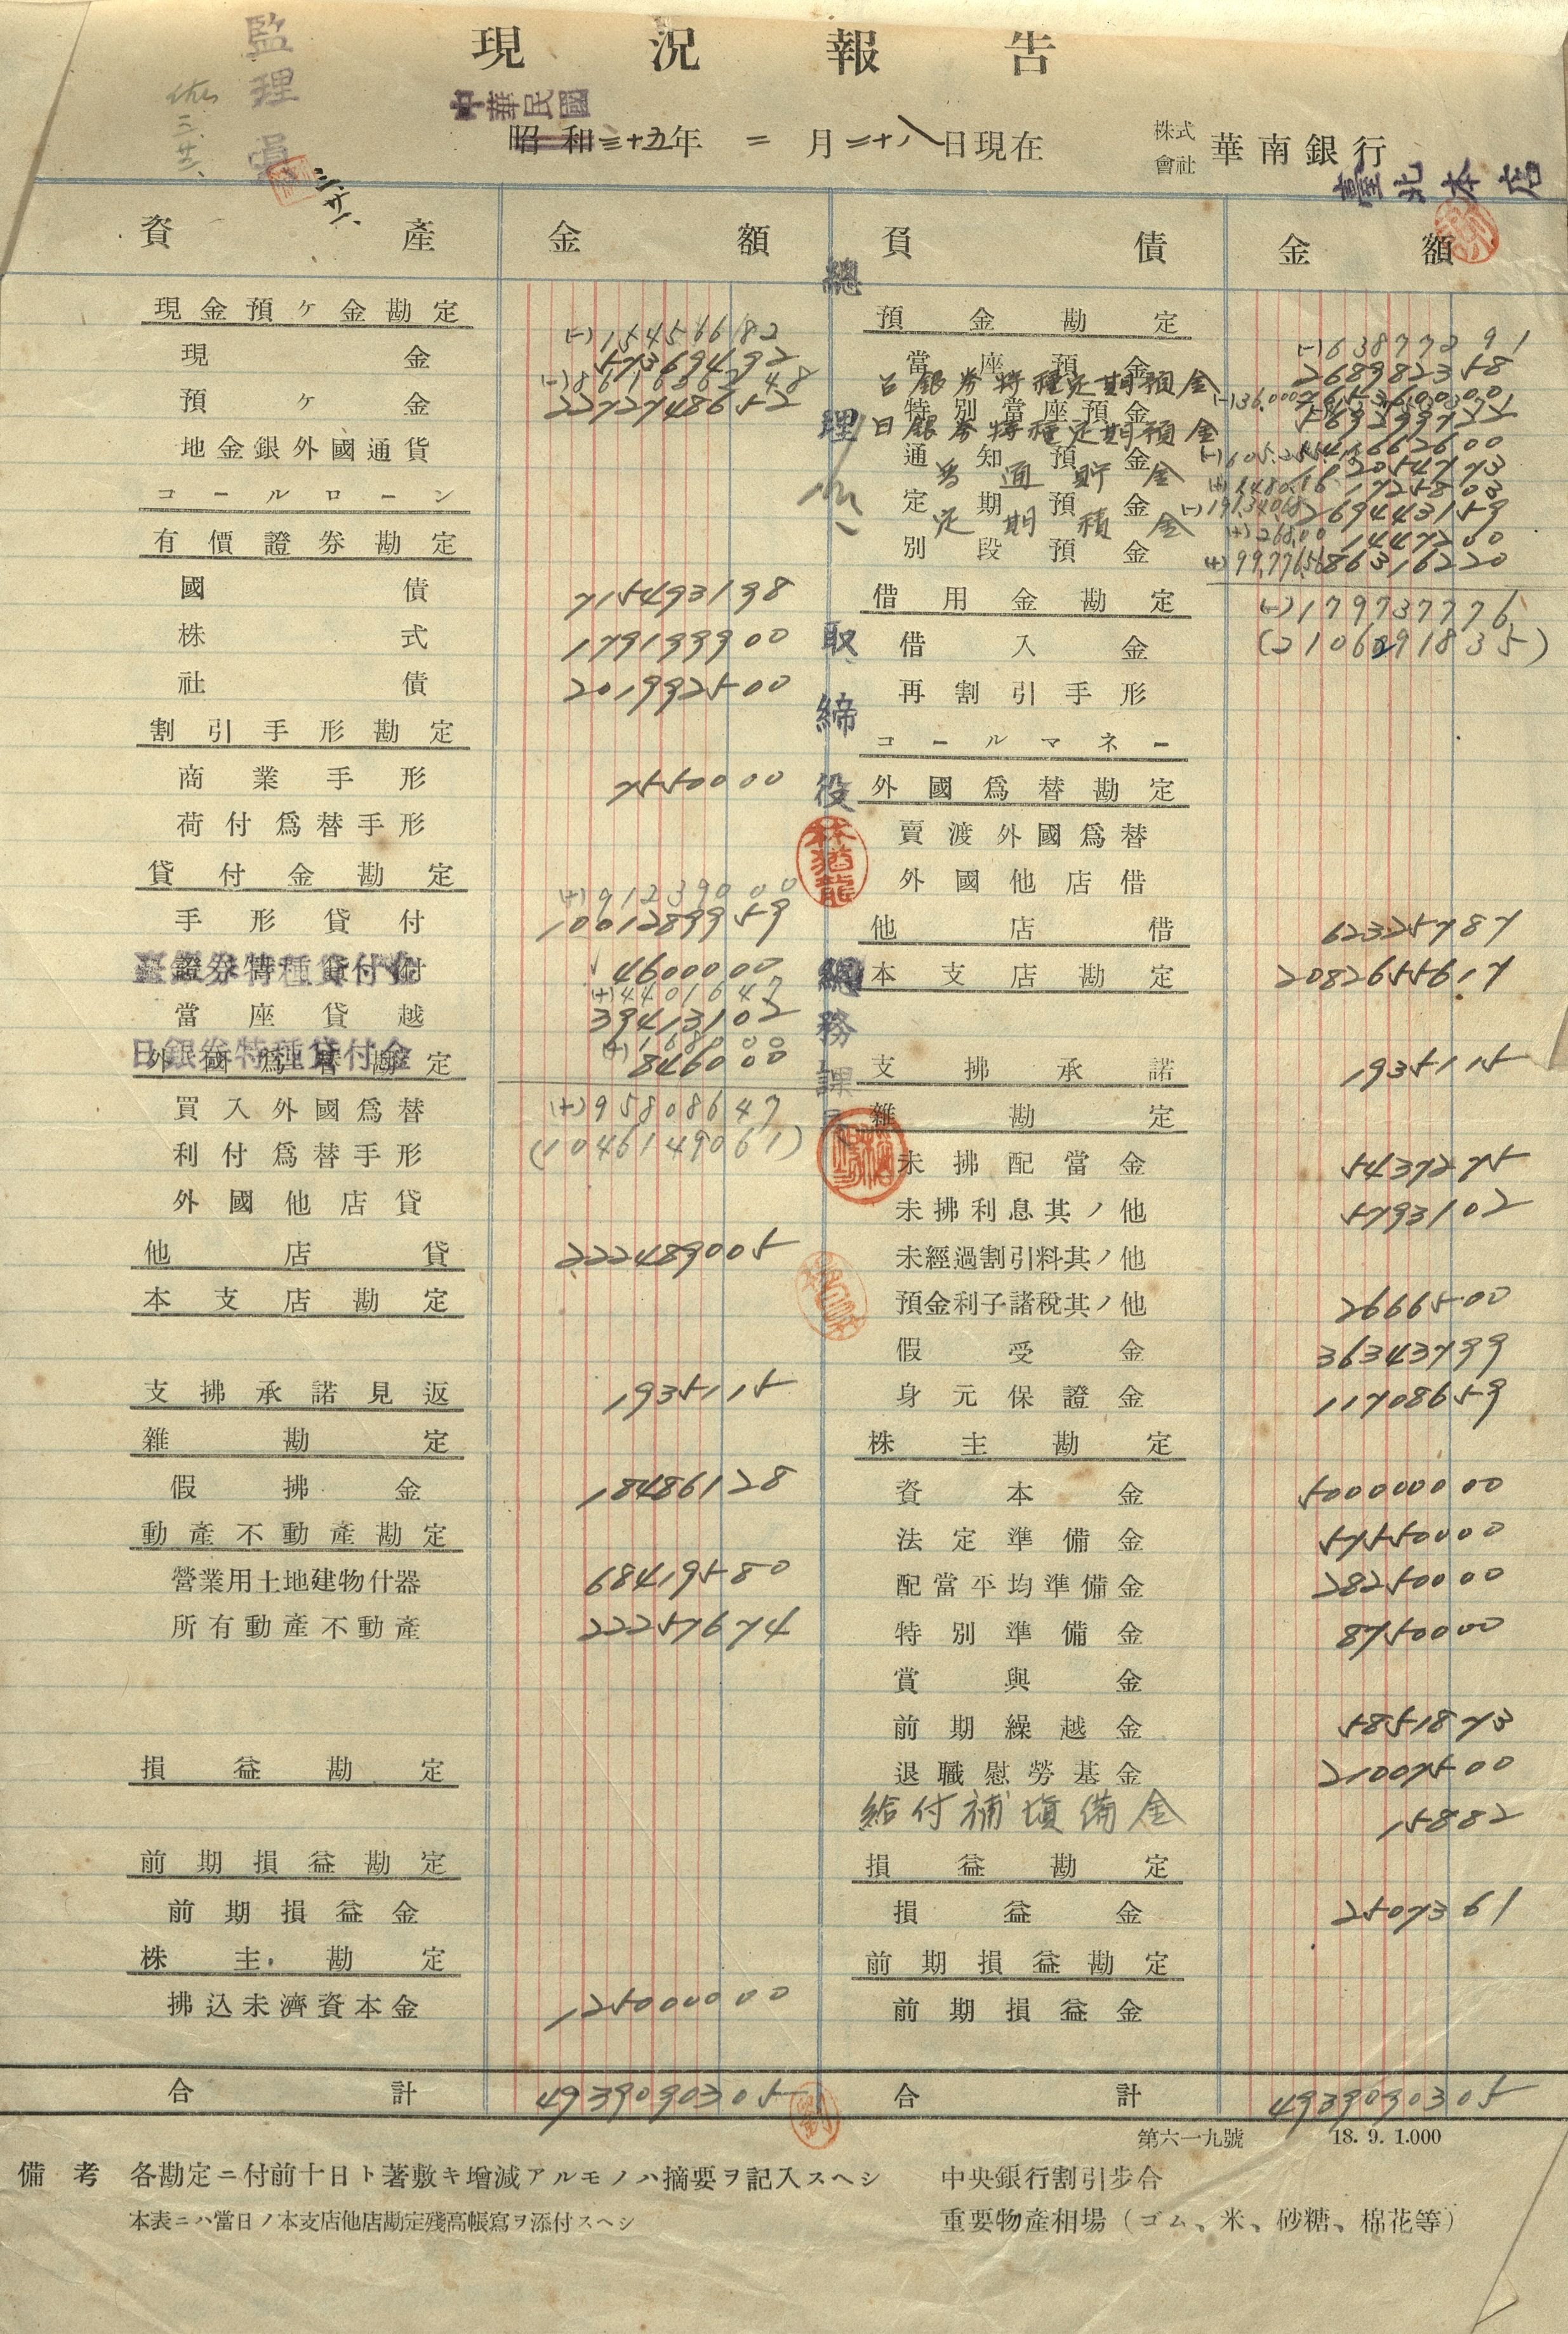 監理員
現況報告
中華民國
昭和三十五年二月二十八日現在
株式會社 華南銀行
臺北本店
資產 金額 負債 金額
現金預ケ金勘定
(-)15456682
現金 57369492
預ケ金 2272748652
地金銀外國通貨
コールローン
有價證券勘定
國債 715493198
株式 179199900
社債 201992500
割引手形勘定
商業手形 7550000
荷付爲替手形
貸付金勘定
(+)91239000
手形貸付 1001289959
臺銀券特種貸付金 4600000
(+)4401647
當座貸越 39413102
日銀券特種貸付金
外國爲替勘定 846000
(+)168000
買入外國爲替 (+)95808647
利付爲替手形 (1046149061)
外國他店貸
他店貸 222489005
本支店勘定
支拂承諾見返 1935115
雜勘定
假拂金 18486128
動產不動產勘定
營業用土地建物什器 68419580
所有動產不動產 22257674
損益勘定
前期損益勘定
前期損益金
株主勘定
拂込未濟資本金 125000000
合計 4939090305
總理
取締役
林猶龍
總務課長
預金勘定
(-)63877391
當座預金 268982358
台銀券特種定期預金
特別當座預金
日銀券特種定期預金
通知預金
普通貯金
定期預金 269443159
定期積金 1447200
別段預金 86316220
借用金勘定 (-)179737776
借入金 (2106291835)
再割引手形
コールマネー
外國爲替勘定
賣渡外國爲替
外國他店借
他店借 62325787
本支店勘定 2082655617
支拂承諾 1935115
雜勘定
未拂配當金 5437275
未拂利息其ノ他 5793102
未經過割引料其ノ他
預金利子諸稅其ノ他 2666500
假受金 36343799
身元保證金 11708659
株主勘定
資本金 500000000
法定準備金 57550000
配當平均準備金 28250000
特別準備金 8750000
賞與金
前期繰越金 5851873
退職慰勞基金 21007500
給付補塡備金 15882
損益勘定
損益金 2507361
前期損益勘定
前期損益金
合計 4939090305
劉
第六一九號 18. 9. 1.000
備考 各勘定ニ付前十日ト著敷キ增減アルモノハ摘要ヲ記入スヘシ
本表ニハ當日ノ本支店他店勘定殘高帳寫ヲ添付スヘシ
中央銀行割引步合
重要物產相場（ゴム、米、砂糖、棉花等）